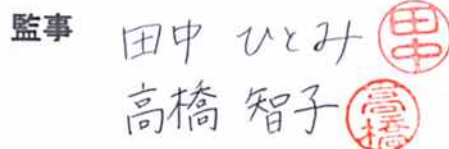 監事 田中 ひとみ 田中
高橋 智子 高橋